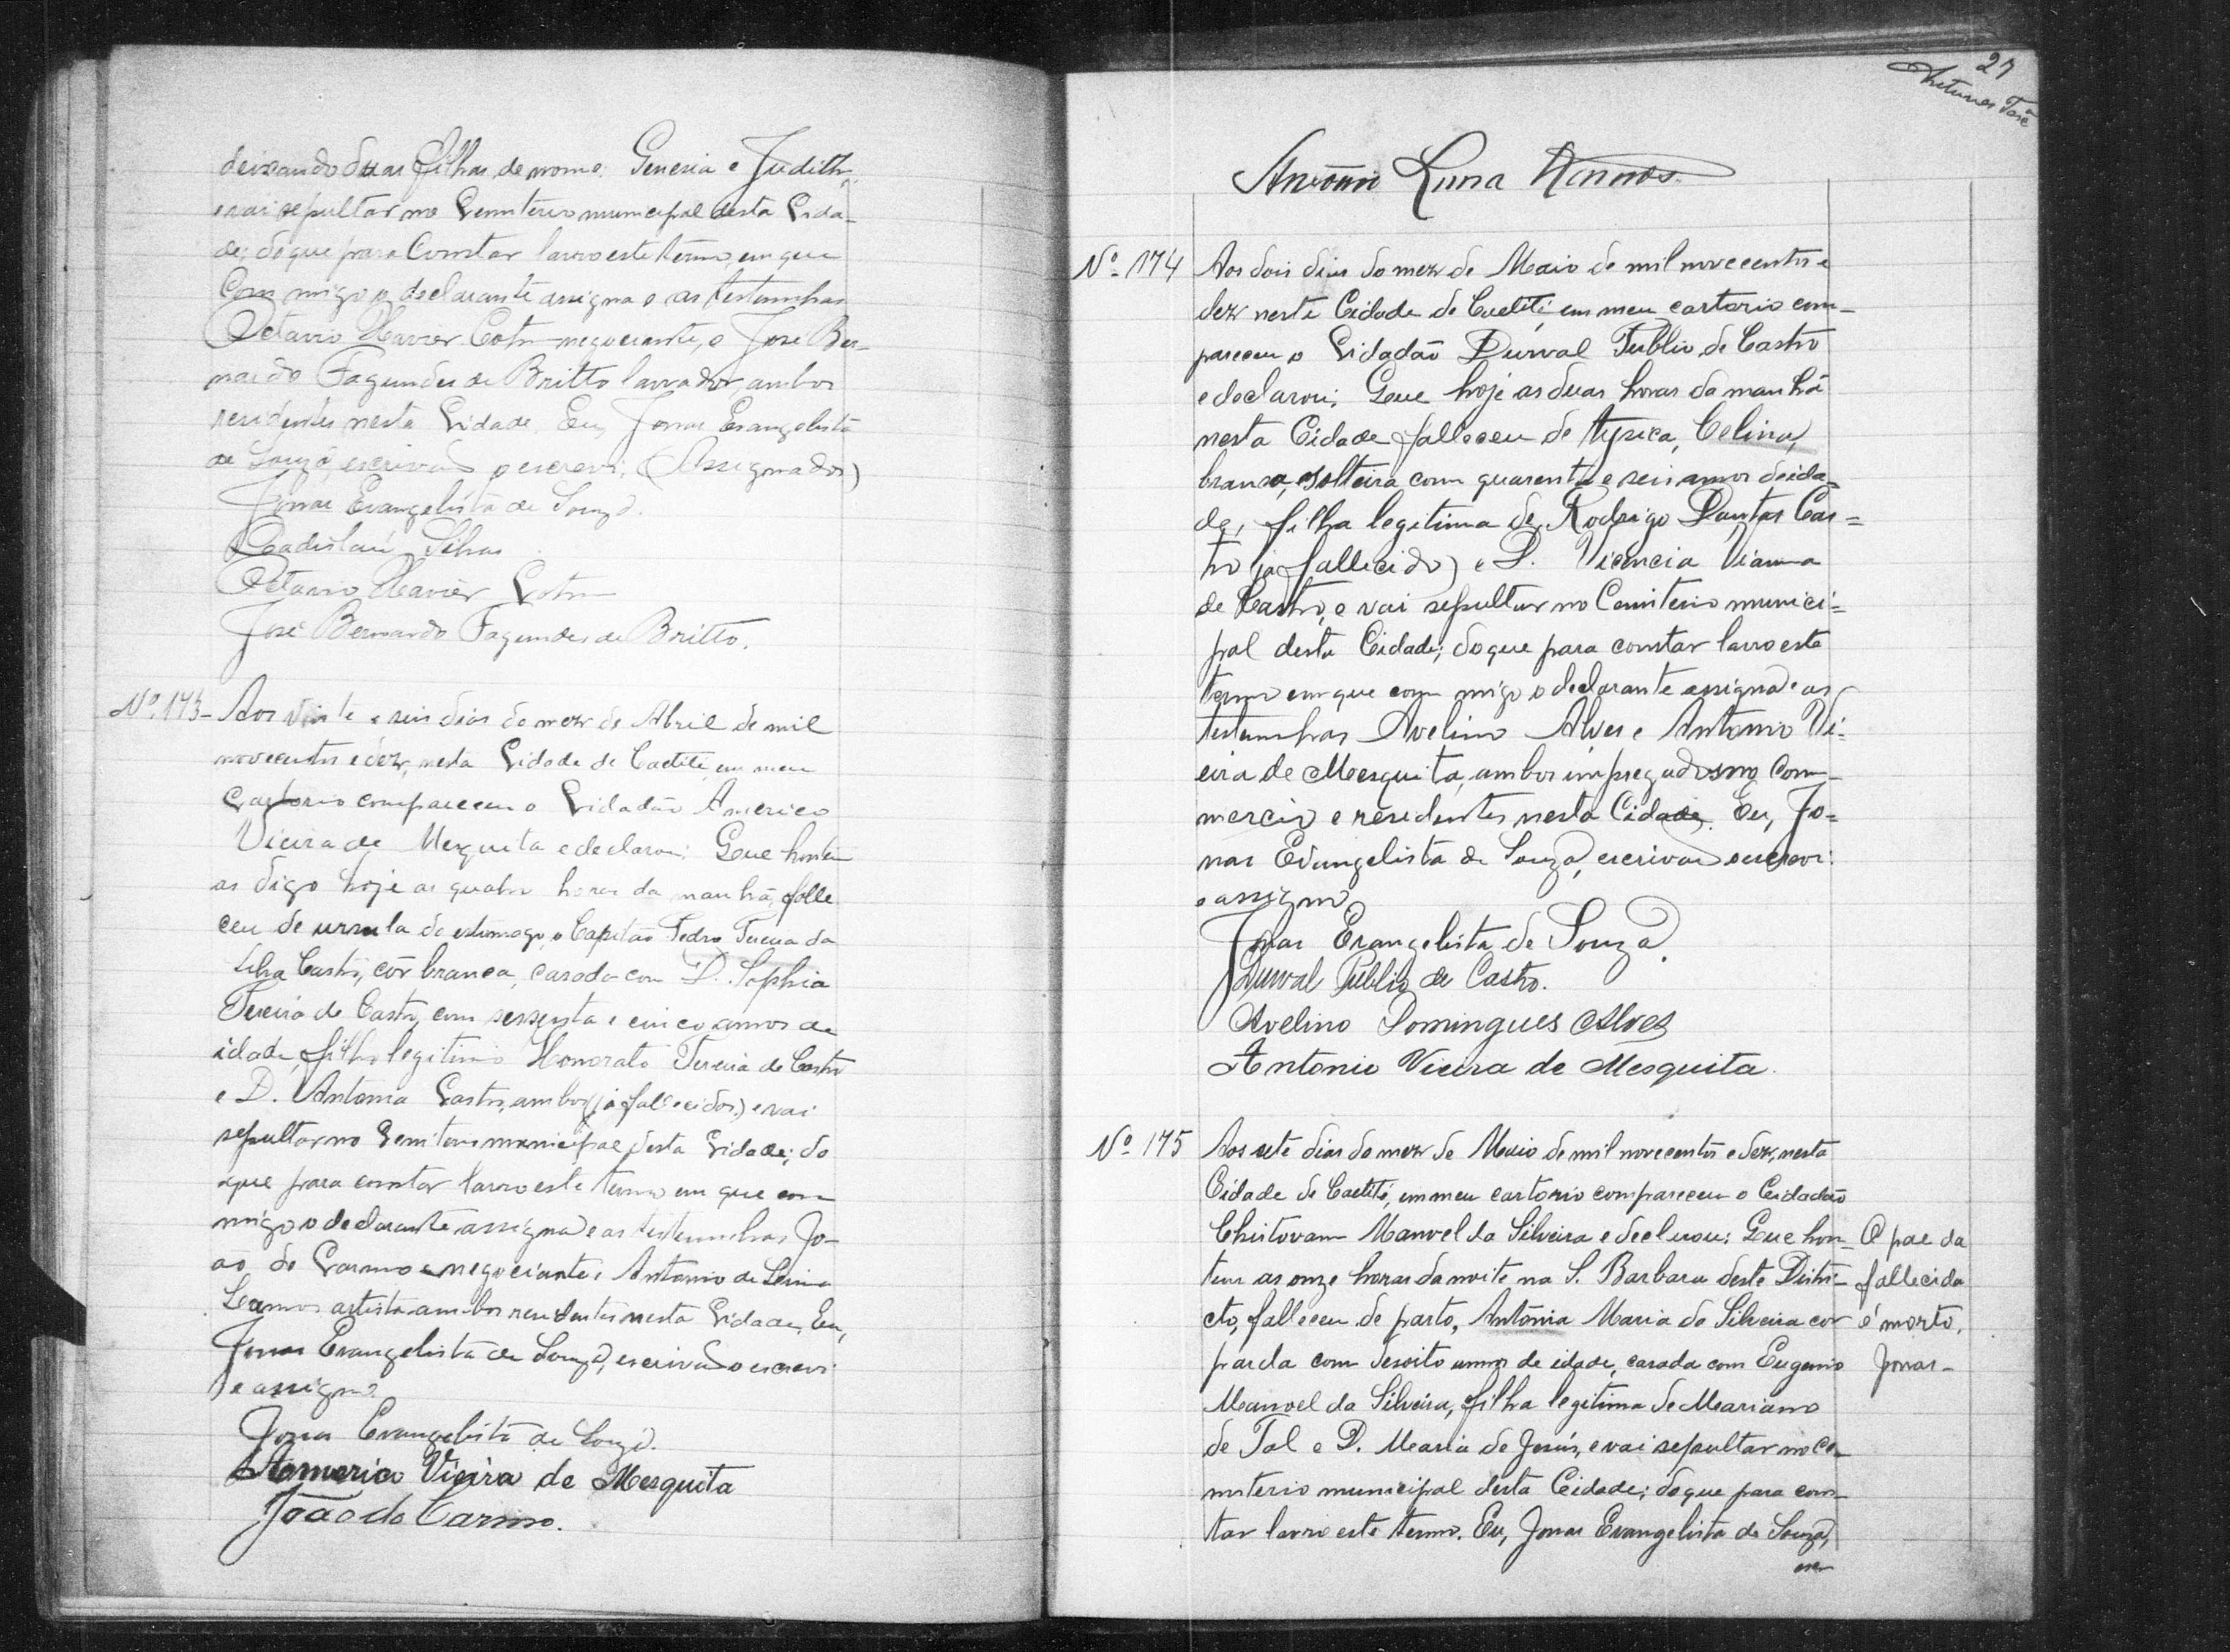 deixando duas filhas de nome: Generia e Judith,
e vai sepultar no Cemiterio municipal desta Cida-
de; do que para Constar lavro este termo, em que
Com migo o declarante assigna e as testemunhas
Octavio Xavier Cotrim negociante, e José Ber-
nardo Fagundes de Britto lavrador ambos
residentes nesta Cidade. Eu, Jonas Evangelista
de Souza, escrivão o escrevi. (Assignados)
Jonas Evangelista de Souza.
Ladislau Silvas
Octavio Xavier Cotrim
José Bernardo Fagundes de Britto.
Nº 173- Aos vinte e seis dias do mez de Abril de mil
novecentos e dez, nesta Cidade de Caetité, em meu
Cartorio compareceu o Cidadão Americo
Vieira de Mesquita e declarou: Que hontem
as digo hoje as quatro horas da manhã, falle
ceu de ursula do estomago, o Capitão Pedro
Castro, côr branca, casado com D. Sophia
de Castro, com sessenta e cinco annos de
idade, filho legitimo Honorato de Castro
e D. Antonia Castro, ambos (já fallecidos) e vai
sepultar no Cemiterio municipal desta Cidade; do
que para constar lavro este termo em que com
migo o declarante assigna e as testemunhas Jo-
ão do Carmo e negociante e Antonio de
Lemos artista ambos residentes nesta Cidade. Eu,
Jonas Evangelista de Souza, escrivão o escrevi
e assigno.
Jonas Evangelista de Souza.
Americo Vieira de Mesquita
João do Carmo.
27
Antonio
Nº 174 Aos dois dias do mez de Maio de mil novecentos e
dez neste Cidade de Caetité, em meu cartorio com-
pareceu o Cidadão Durval Publio de Castro
e declarou: Que hoje as duas horas da manhã
nesta Cidade falleceu de tysica, Celina,
branca, solteira com quarenta e seis annos de ida-
de, filha legitima de Rodrigo Dantas Cas=
tro (já fallecido) e D. Vicencia Vianna
de Castro, e vai sepultar no Cemiterio munici=
pal desta Cidade; do que para constar lavro este
termo em que com migo o declarante assigna e as
testemunhas Avelino Alves e Antonio Vi=
eira de Mesquita, ambos impregados no Com-
mercio e residentes nesta Cidade. Eu, Jo=
nas Evangelista de Souza, escrivão o escrevi
e assigno
Jonas Evangelista de Souza.
Durval Publio de Castro.
Avelino Domingues Alves
Antonio Vieira de Mesquita.
Nº 175 Aos sete dias do mez de Maio de mil novecentos e dez, nesta
Cidade de Caetité, em meu cartorio compareceu o Cidadão
Christovam Manoel da Silveira e declarou: Que hon-
tem as onze horas da noite na S. Barbara deste Distri-
cto, falleceu de parto, Antônia Maria da Silveira cor
parda com desoito annos de idade, casada com Eugenio
Manoel da Silveira, filha legitima de Mariano
de Tal e D. Maria de Jesús, e vai sepultar no Ce-
miterio municipal desta Cidade; do que para cons-
tar lavro este termo. Eu, Jonas Evangelista de Souza,
escr
O pae da
fallecida
é morto.
Jonas-